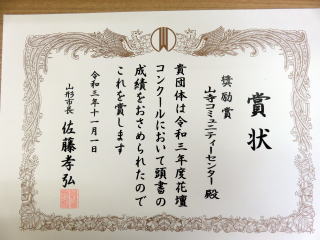 賞状
奨励賞
山寺コミュニティーセンター殿
貴団体は令和三年度花壇
コンクールにおいて頭書の
成績をおさめられたので
これを賞します
令和三年十一月一日
山形市長 佐藤孝弘